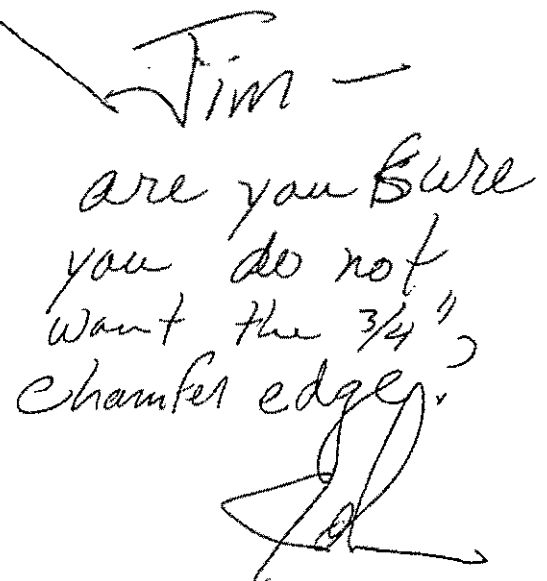 Jim —
are you sure
you do not
want the 3/4"
chamfer edge?